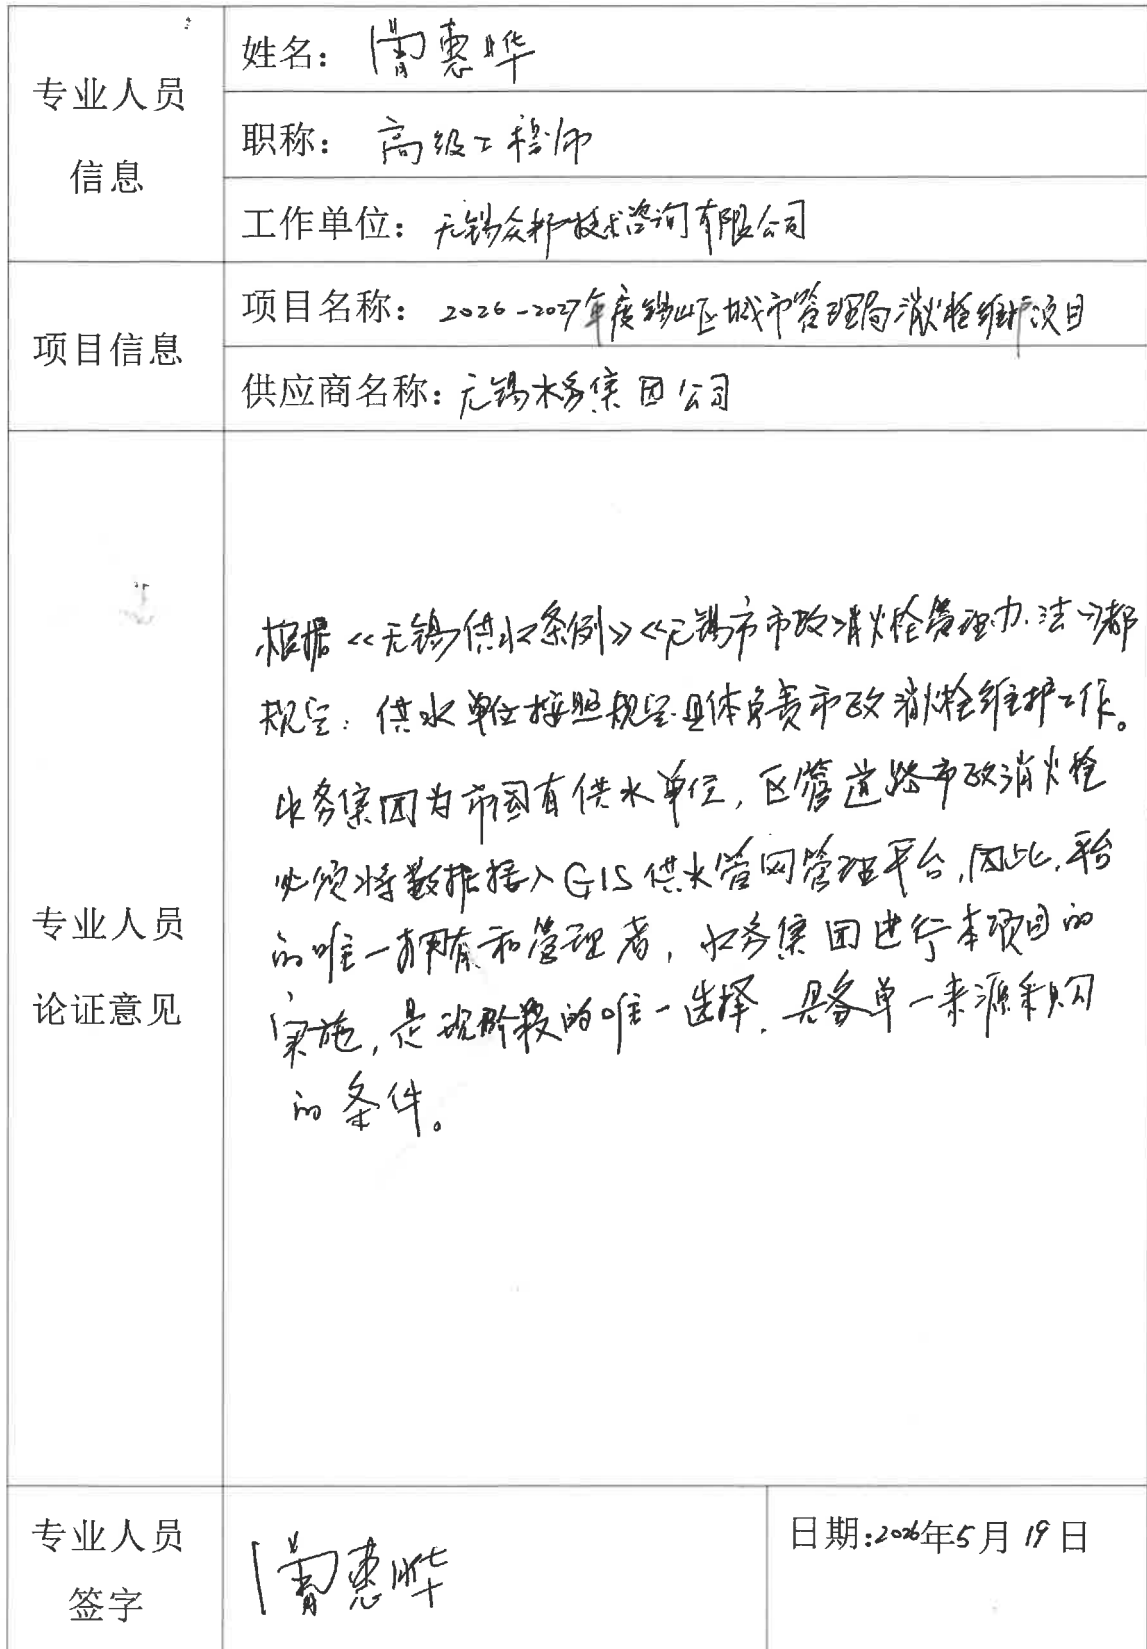 专业人员
信息
姓名：惠晔
职称：高级工程师
工作单位：无锡众邦技术咨询有限公司
项目信息
项目名称：2026-2027年度锡山区城市管理局消火栓维护项目
供应商名称：无锡水务集团公司
专业人员
论证意见
根据《无锡供水条例》《无锡市市政消火栓管理办法》都
规定：供水单位按照规定具体负责市政消火栓维护工作。
水务集团为市国有供水单位，区管道路市政消火栓
必须将数据接入GIS供水管网管理平台，因此，平台
的唯一拥有和管理者，水务集团进行本项目的
实施，是现阶段的唯一选择，具备单一来源采购
的条件。
专业人员
签字
惠晔
日期：2026年5月19日